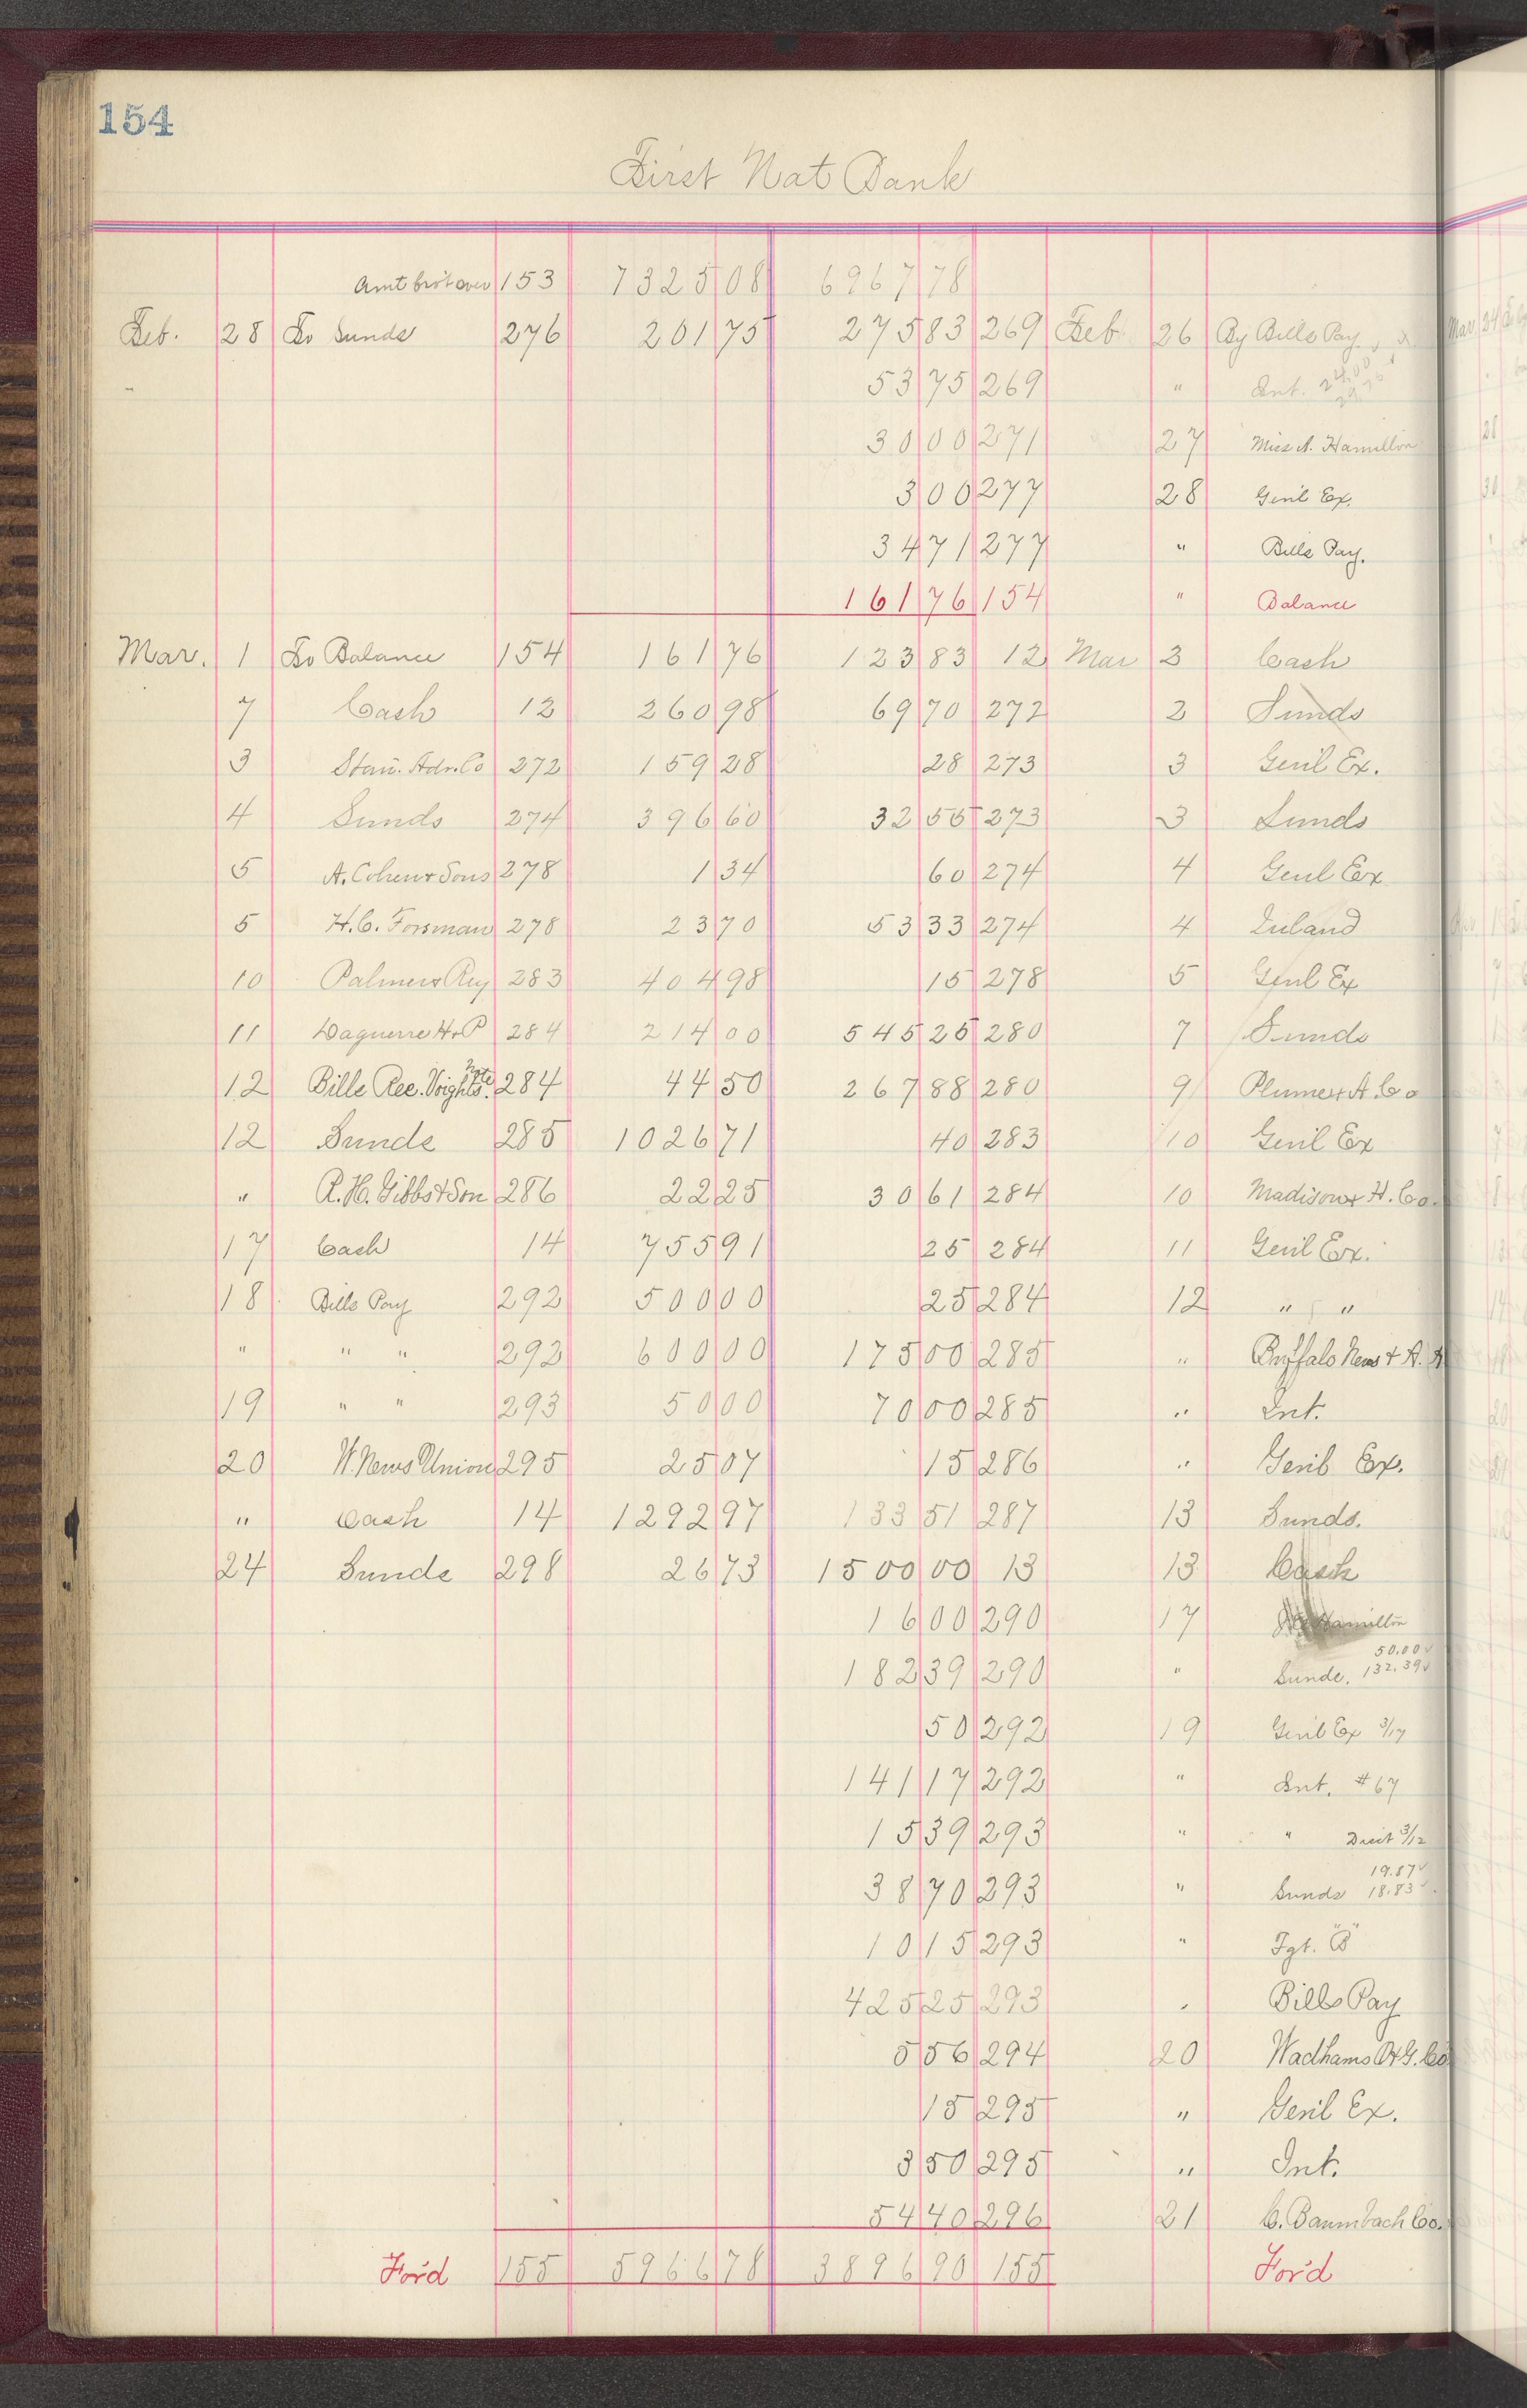 154
First Nat Bank
Amt brot over 153 7325 08 6967 78
Feb. 28 To Sunds 276 201 75 275 83 269 Feb 26 By Bills Pay
" 53 75 269 " Int. 24.00 29.75
30 00 271 27 Miss A. Hamilton
3 00 277 28 Gen'l Ex.
34 71 277 " Bills Pay.
161 76 154 " Balance
Mar. 1 To Balance 154 161 76 123 83 12 Mar 2 Cash
7 Cash 12 260 98 69 70 272 2 Sunds
3 Stan. Adv. Co 272 159 28 28 273 3 Gen'l Ex.
4 Sunds 274 396 60 32 55 273 3 Sunds
5 A. Cohen & Sons 278 1 34 60 274 4 Genl Ex
5 H.C. Forsman 278 23 70 53 33 274 4 Inland
10 Palmer & Rey 283 404 98 15 278 5 Genl Ex
11 Daguerre H&P 284 214 00 545 25 280 7 Sunds
12 Bills Rec. Voights Note 284 44 50 267 88 280 9 Plumer & A. Co
12 Sunds 285 1026 71 40 283 10 Gen'l Ex
" R.H. Gibbs & Son 286 22 25 30 61 284 10 Madison & H. Co.
17 Cash 14 755 91 25 284 11 Gen'l Ex.
18 Bills Pay 292 500 00 25 284 12 " "
" " " 292 600 00 175 00 285 " Buffalo News & A.
19 " " 293 50 00 70 00 285 " Int.
20 W. News Union 295 25 07 15 286 " Gen'l Ex.
" Cash 14 1292 97 133 51 287 13 Sunds.
24 Sunds 298 26 73 1500 00 13 13 Cash
16 00 290 17 Hamilton
182 39 290 " Sunds. 50.00 132.39
50 292 19 Gen'l Ex 3/17
141 17 292 " Int. #67
15 39 293 " " 3/12
38 70 293 " Sunds 19.87 18.83
10 15 293 " Fgt. "B"
425 25 293 " Bills Pay
5 56 294 20 Wadhams O&G. Co.
15 295 " Gen'l Ex.
3 50 295 " Int.
54 40 296 21 C. Baumbach Co.
For'd 155 5966 78 3896 90 155 For'd